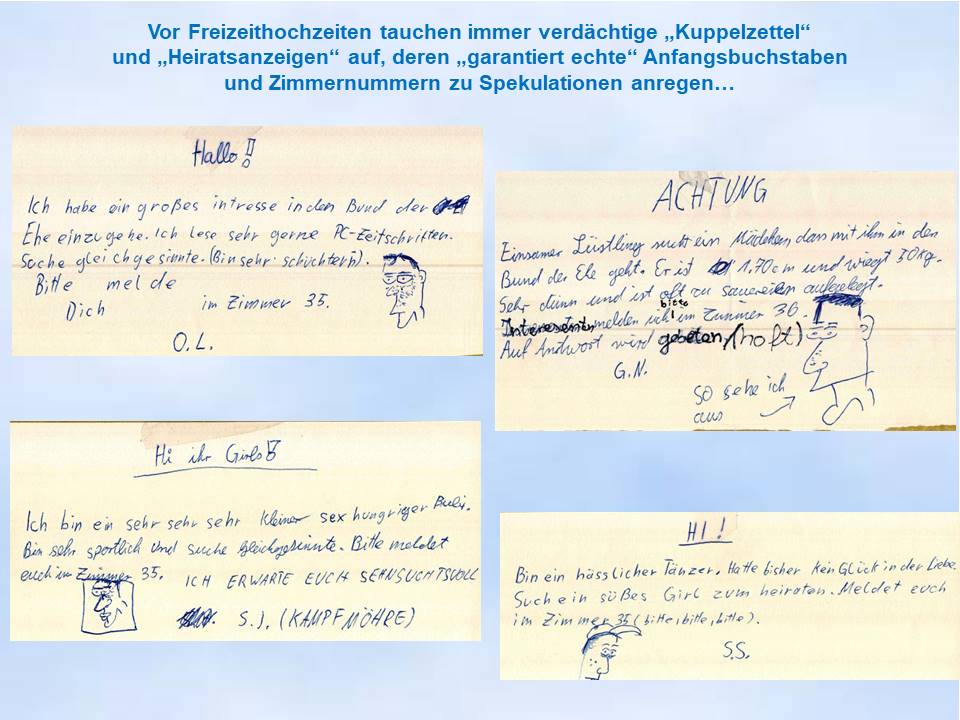 Vor Freizeithochzeiten tauchen immer verdächtige „Kuppelzettel“
und „Heiratsanzeigen“ auf, deren „garantiert echte“ Anfangsbuchstaben
und Zimmernummern zu Spekulationen anregen…
Hallo!
Ich habe ein großes intresse in den Bund der
Ehe einzugehe. Ich lese sehr gerne PC-Zeitschriften.
Suche gleichgesinnte. (Bin sehr schüchtern).
Bitte melde
Dich im Zimmer 35.
O.L.
ACHTUNG
Einsamer Lüstling sucht ein Mädchen das mit ihm in den
Bund der Ehe geht. Er ist 1,70cm und wiegt 30kg.
Sehr dünn und ist oft zu sauereien aufgelegt.
Interesenten melden sich bitte im Zimmer 36.
Auf Andwort wird gebeten/(hoft)
G.N.
so sehe ich
aus
Hi ihr Girls!
Ich bin ein sehr sehr sehr kleiner sex hungriger
Bin sehr sportlich und suche Gleichgesinnte. Bitte meldet
euch im Zimmer 35. ICH ERWARTE EUCH SEHNSUCHTSVOLL
S.J. (KAMPFMÖHRE)
HI!
Bin ein hässlicher Tänzer. Hatte bisher kein Glück in der Liebe.
Suche ein süßes Girl zum heiraten. Meldet euch
im Zimmer 35 (bitte, bitte, bitte).
S.S.